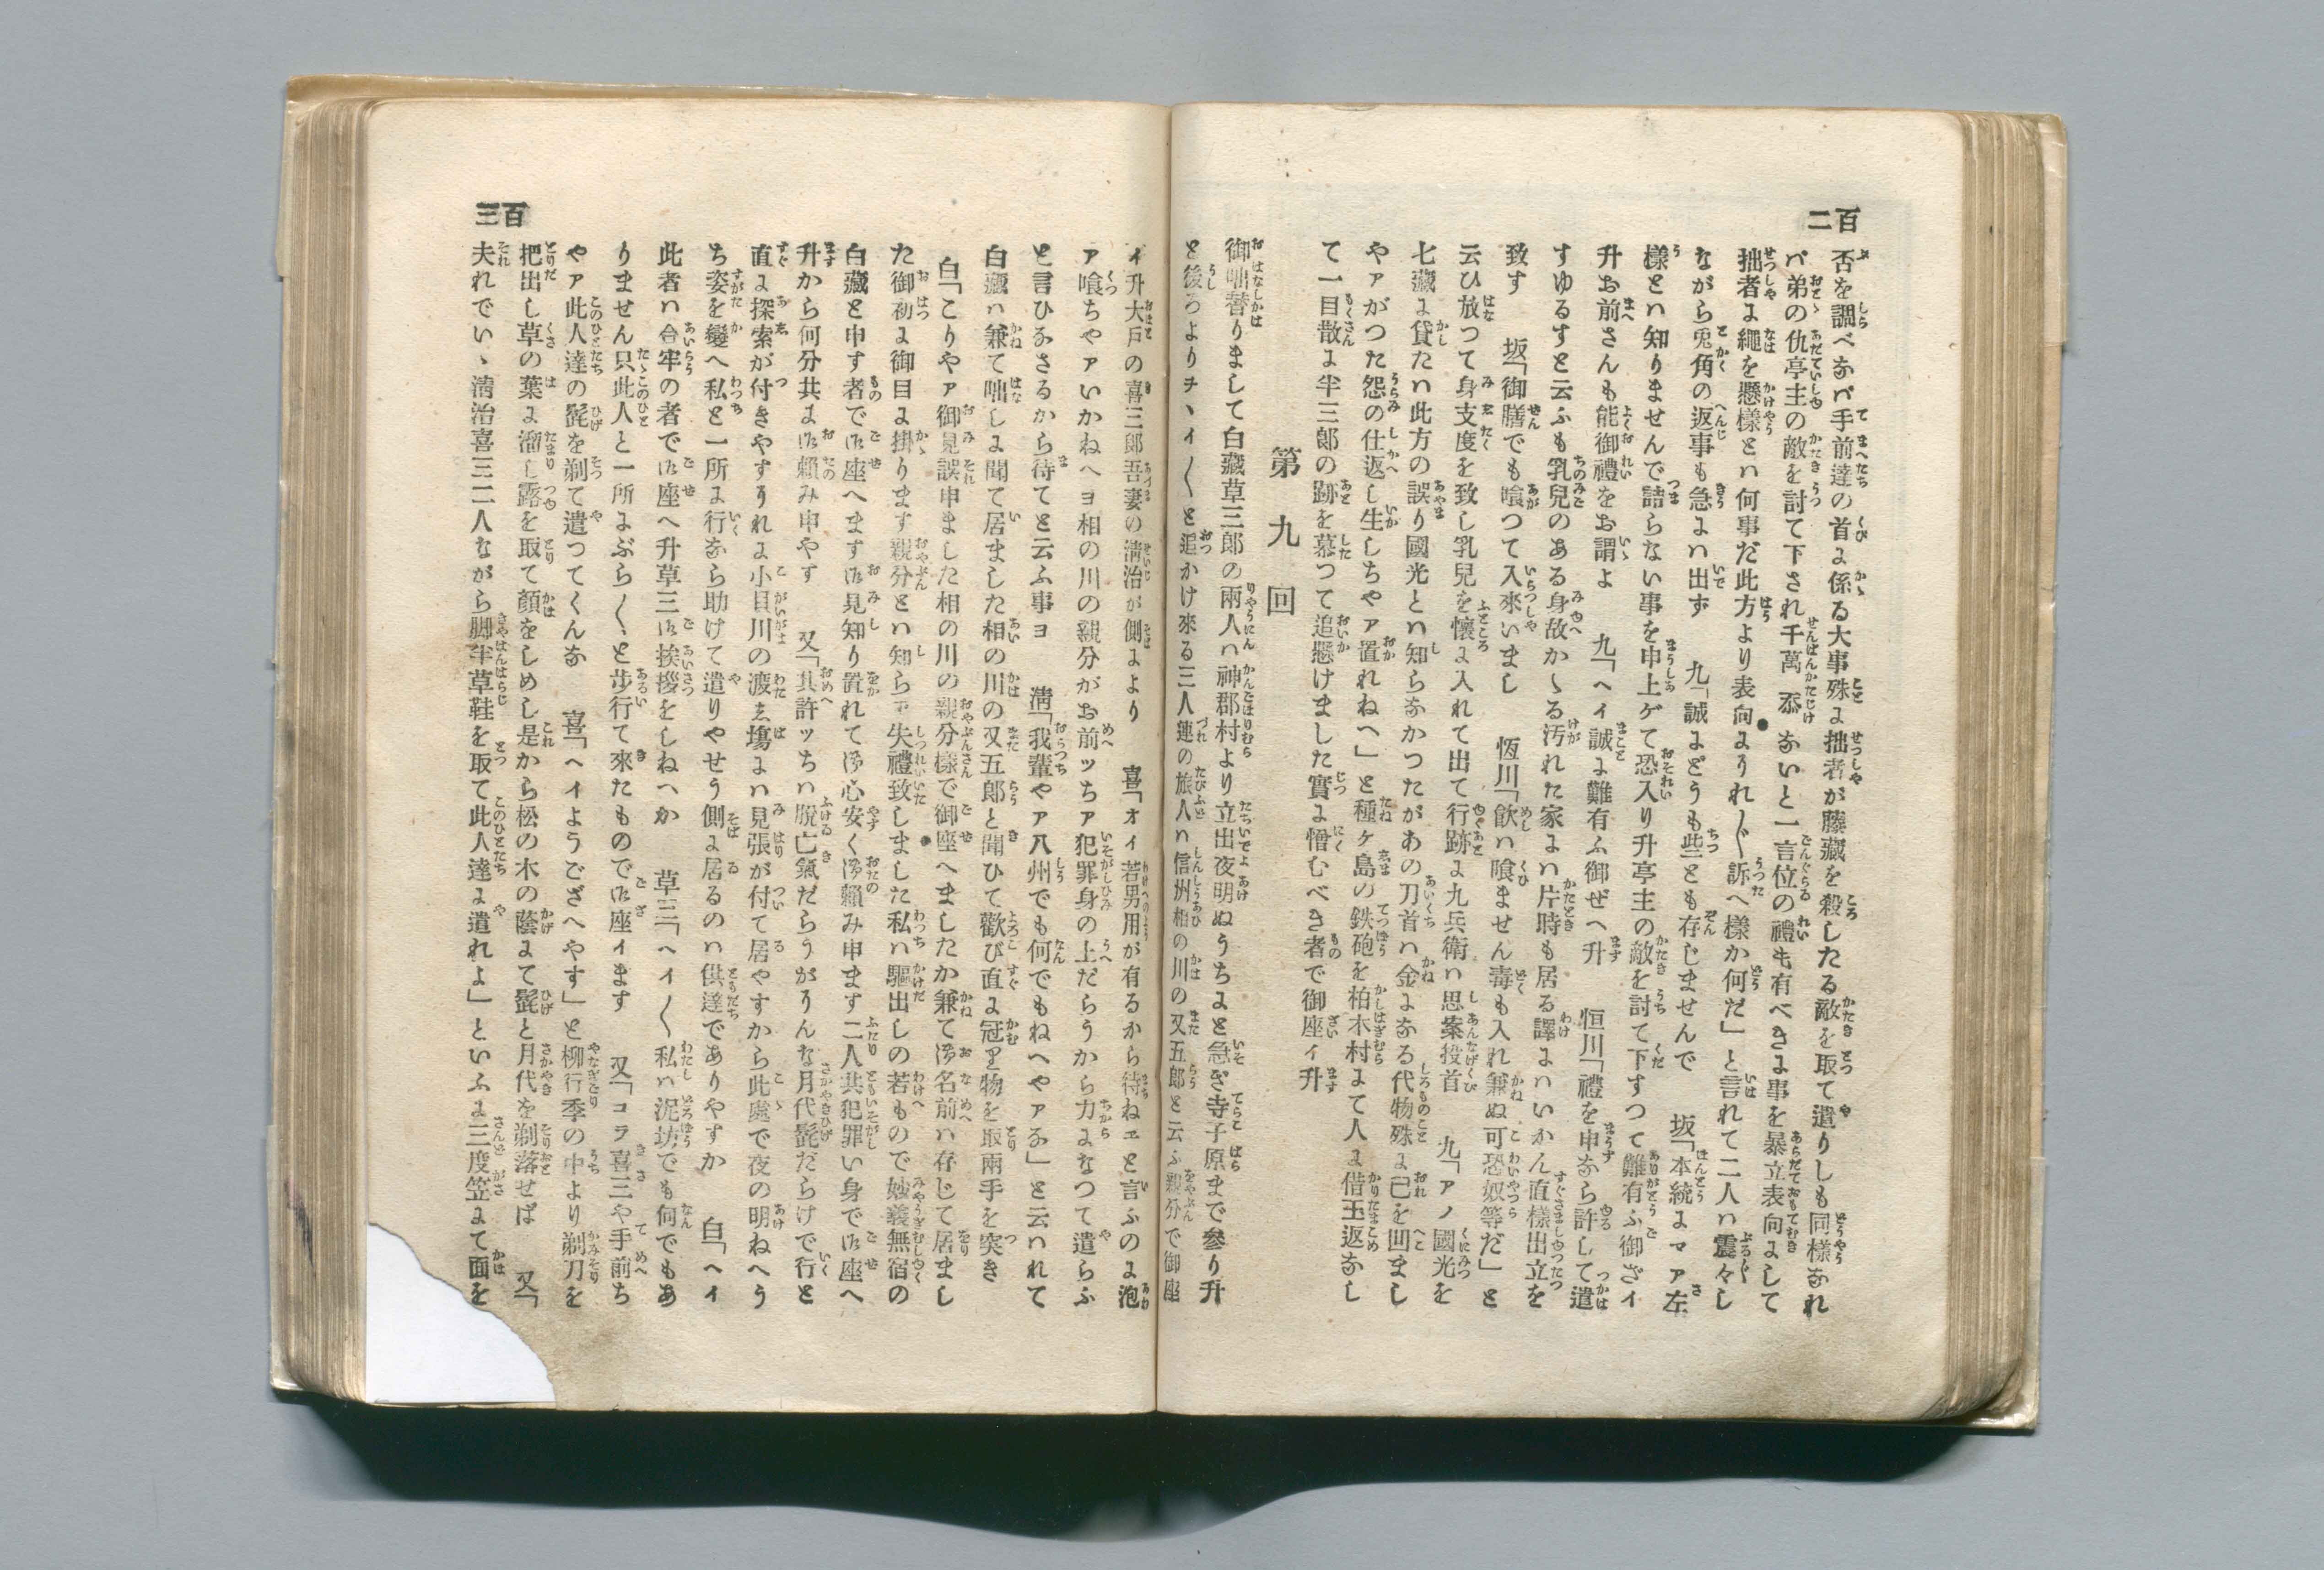 百二
否を調べなバ手前達の首に係る大事殊に拙者が藤藏を殺したる敵を取て遣りしも同様なれ
バ弟の仇亭主の敵を討て下され千萬忝ないと一言位の禮も有べきに事を暴立表向にして
拙者に繩を懸様とハ何事だ此方より表向にうれ〳〵訴へ様か何だ」と言れて二人ハ震々し
ながら兎角の返事も急にハ出ず　九「誠にどうも些とも存じませんで　坂「本統にマア左
様とハ知りませんで詰らない事を申上ゲて恐入り升亭主の敵を討て下すつて難有ふ御ざイ
升お前さんも能御禮をお謂よ　九「ヘイ誠に難有ふ御ぜへ升　恒川「禮を申なら許して遣
すゆるすと云ふも乳兒のある身故かゝる汚れた家にハ片時も居る譯にハいかん直樣出立を
致す　坂「御膳でも喰つて入來いまし　恆川「飮ハ喰ません毒も入れ兼ぬ可恐奴等だ」と
云ひ放つて身支度を致し乳兒を懷に入れて出て行跡に九兵衛ハ思案投首　九「アノ國光を
七藏に貸たハ此方の誤り國光とハ知らなかつたがあの刀首ハ金になる代物殊に己を凹まし
やアがつた怨の仕返し生しちやア置れねへ」と種ヶ島の鉄砲を柏木村にて人に借玉返なし
て一目散に半三郎の跡を慕つて追懸けました實に憎むべき者で御座イ升
第九回
御咄替りまして白藏草三郎の兩人ハ神郡村より立出夜明ぬうちにと急ぎ寺子原まで參り升
と後ろよりヲヽイ〳〵と追かけ來る三人連の旅人ハ信州相の川の又五郎と云ふ親分で御座
百三
イ升大戸の喜三郎吾妻の淸治が側により　喜「オイ若男用が有るから待ねエと言ふのに泡
ア喰ちやアいかねヘヨ相の川の親分がお前ッちア犯罪身の上だらうから力になつて遣らふ
と言ひなさるから待てと云ふ事ヨ　淸「我輩やア八州でも何でもねへやアな」と云ハれて
白藏ハ兼て咄しに聞て居ました相の川の又五郎と聞ひて歡び直に冠り物を取兩手を突き
白「こりやア御見誤申ました相の川の親分樣で御座へましたか兼て御名前ハ存じて居まし
た御初に御目に掛ります親分とハ知らず失禮致しました私ハ驅出しの若もので妙義無宿の
白藏と申す者で御座へます御見知り置れて御心安く御賴み申ます二人共犯罪い身で御座へ
升から何分共に御賴み申やす　又「其許ッちハ脱亡氣だらうがうんな月代髭だらけで行と
直に探索が付きやすうれに小貝川の渡ゑ塲にハ見張が付て居やすから此處で夜の明ねへう
ち姿を變へ私と一所に行なら助けて遣りやせう側に居るのハ供達でありやすか　白「ヘイ
此者ハ合牢の者で御座へ升草三御挨拶をしねへか　草三「ヘイ〳〵私ハ泥坊でも何でもあ
りません只此人と一所にぶら〳〵と歩行て來たもので御座イます　又「コラ喜三や手前ち
やア此人達の髭を剃て遣つてくんな　喜「ヘイようござへやす」と柳行季の中より剃刀を
把出し草の葉に溜し露を取て顏をしめし是から松の木の蔭にて髭と月代を剃落せば　又「
夫れでいゝ淸治喜三二人ながら脚半草鞋を取て此人達に遣れよ」といふに三度笠にて面を